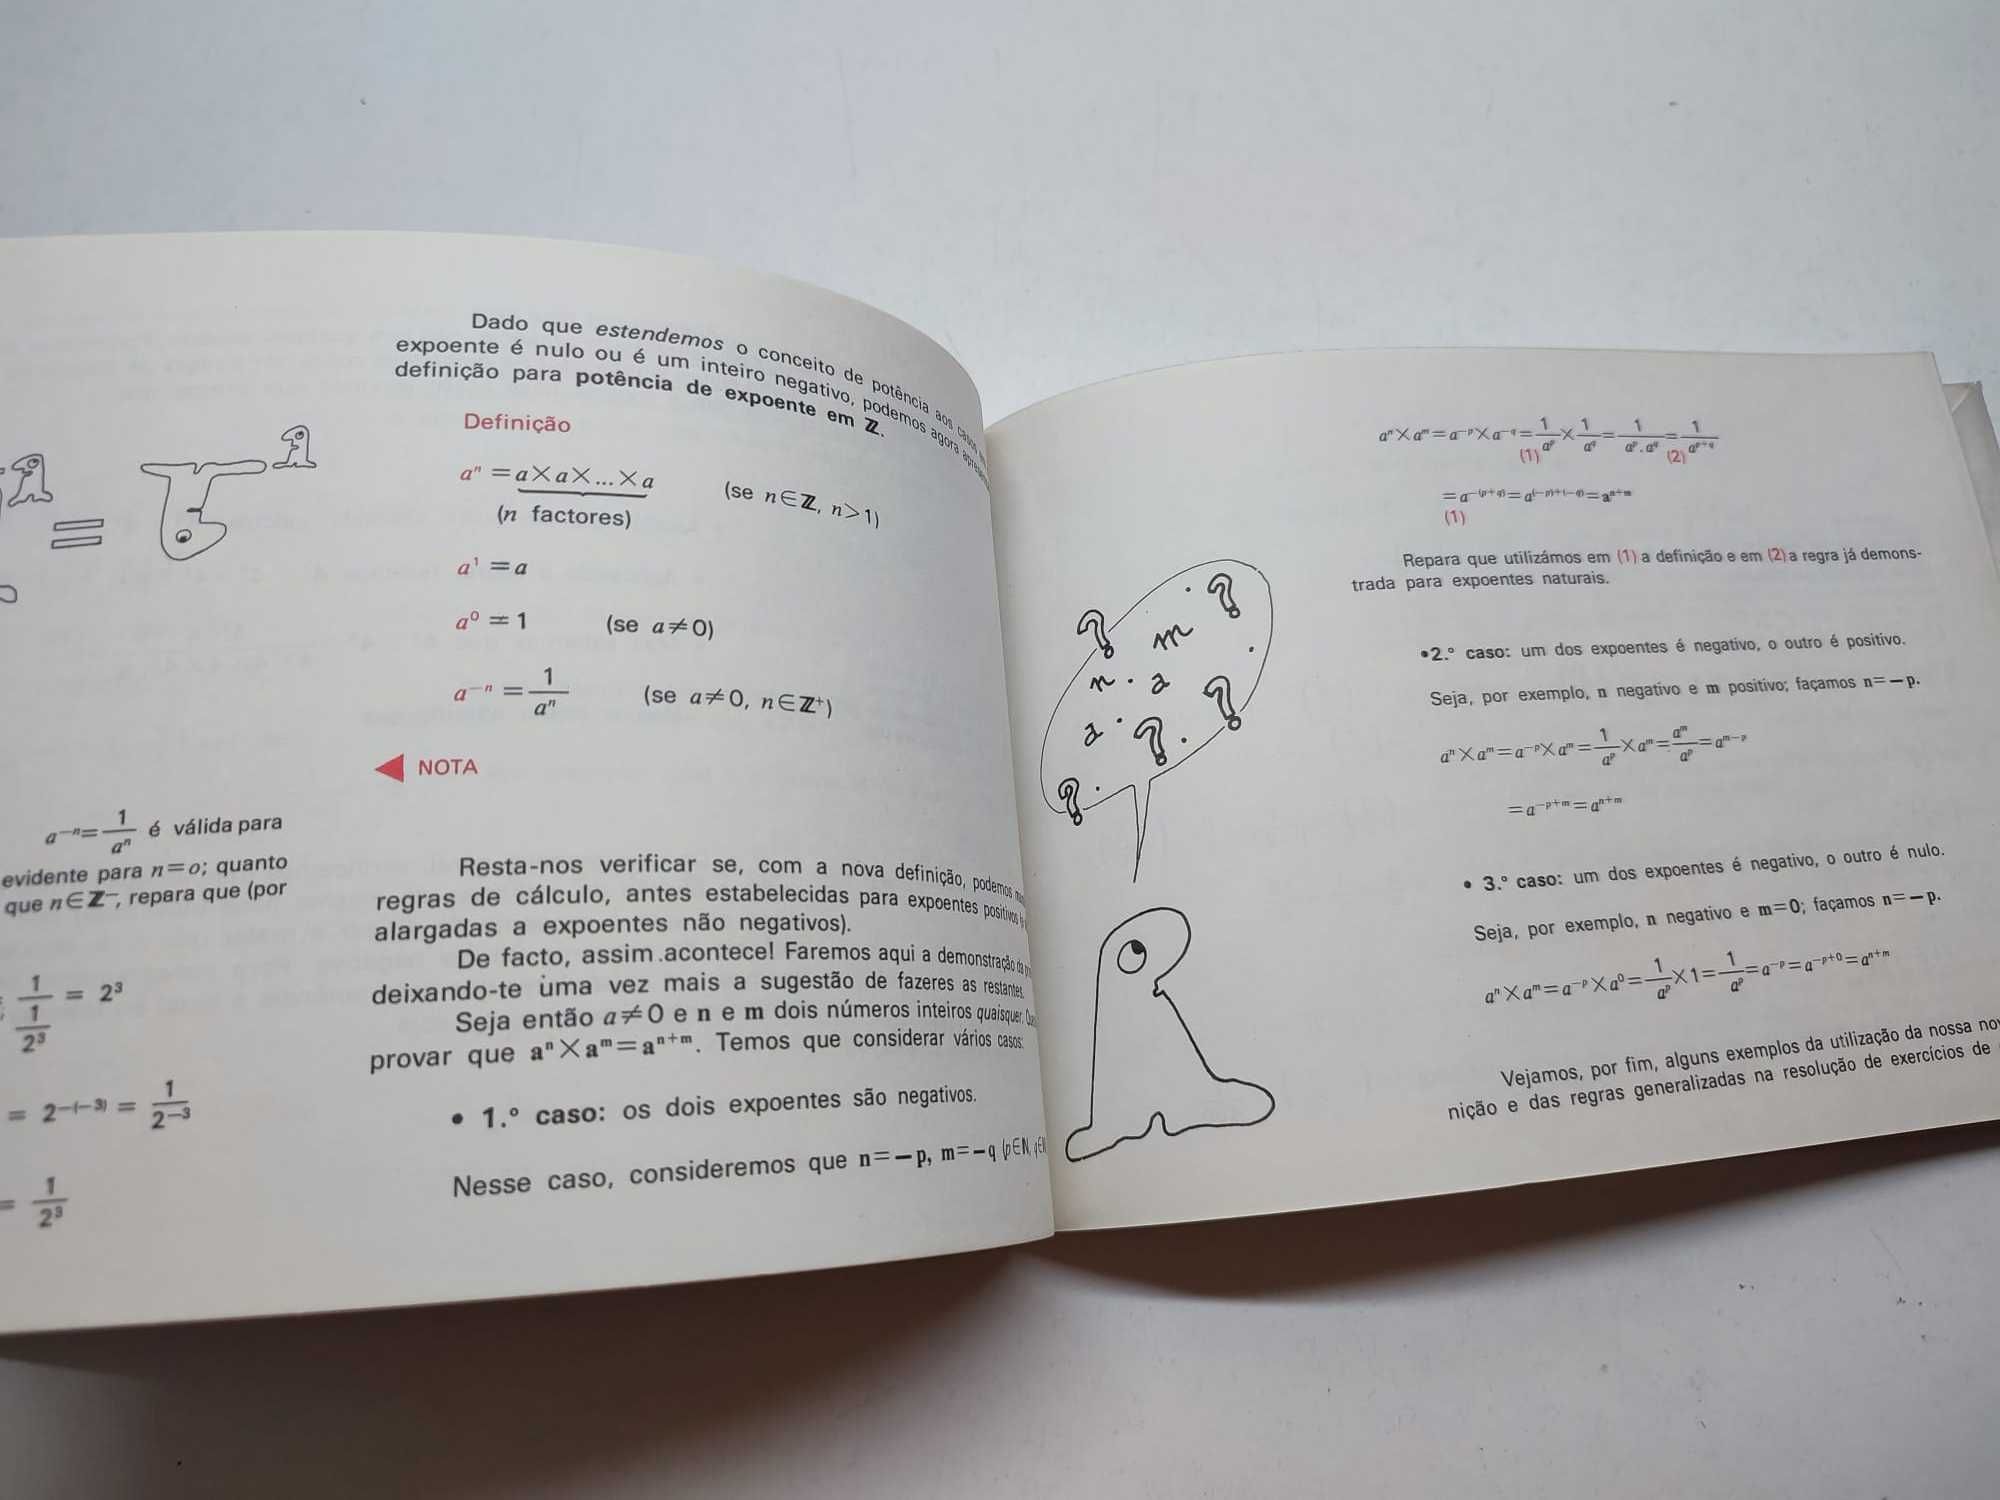 Dado que estendemos o conceito de potência aos casos em
expoente é nulo ou é um inteiro negativo, podemos agora
definição para potência de expoente em ℤ.
Definição
aⁿ = a×a×...×a (se n∈ℤ, n>1)
(n factores)
a¹ = a
a⁰ = 1 (se a≠0)
a⁻ⁿ = 1/aⁿ (se a≠0, n∈ℤ⁺)
NOTA
a⁻ⁿ = 1/aⁿ é válida para
evidente para n=o; quanto
que n∈ℤ⁻, repara que (por
1/(1/2³) = 2³
= 2^(-(-3)) = 1/2⁻³
= 1/2³
Resta-nos verificar se, com a nova definição, podemos
regras de cálculo, antes estabelecidas para expoentes positivos
alargadas a expoentes não negativos).
De facto, assim acontece! Faremos aqui a demonstração
deixando-te uma vez mais a sugestão de fazeres as restantes.
Seja então a≠0 e n e m dois números inteiros quaisquer.
provar que aⁿ×aᵐ=aⁿ⁺ᵐ. Temos que considerar vários casos:
• 1.º caso: os dois expoentes são negativos.
Nesse caso, consideremos que n=−p, m=−q (p∈ℕ,
aⁿ×aᵐ=a^(−p)×a^(−q)=1/a^p×1/a^q=1/(a^p.a^q)=1/a^(p+q)
(1) (2)
=a^(−(p+q))=a^((−p)+(−q))=a^(n+m)
(1)
Repara que utilizámos em (1) a definição e em (2) a regra já demons-
trada para expoentes naturais.
m
n . a
a .
•2.º caso: um dos expoentes é negativo, o outro é positivo.
Seja, por exemplo, n negativo e m positivo; façamos n=−p.
aⁿ×aᵐ=a^(−p)×aᵐ=1/a^p×aᵐ=aᵐ/a^p=a^(m−p)
=a^(−p+m)=a^(n+m)
• 3.º caso: um dos expoentes é negativo, o outro é nulo.
Seja, por exemplo, n negativo e m=0; façamos n=−p.
aⁿ×aᵐ=a^(−p)×a⁰=1/a^p×1=1/a^p=a^(−p)=a^(−p+0)=a^(n+m)
Vejamos, por fim, alguns exemplos da utilização da nossa
nição e das regras generalizadas na resolução de exercícios de